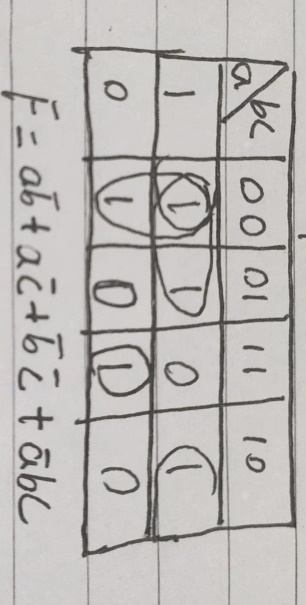 a bc 00 01 11 10
1 1 1 0 1
0 1 0 1 0
F = ab̄ + ac̄ + b̄c̄ + ābc